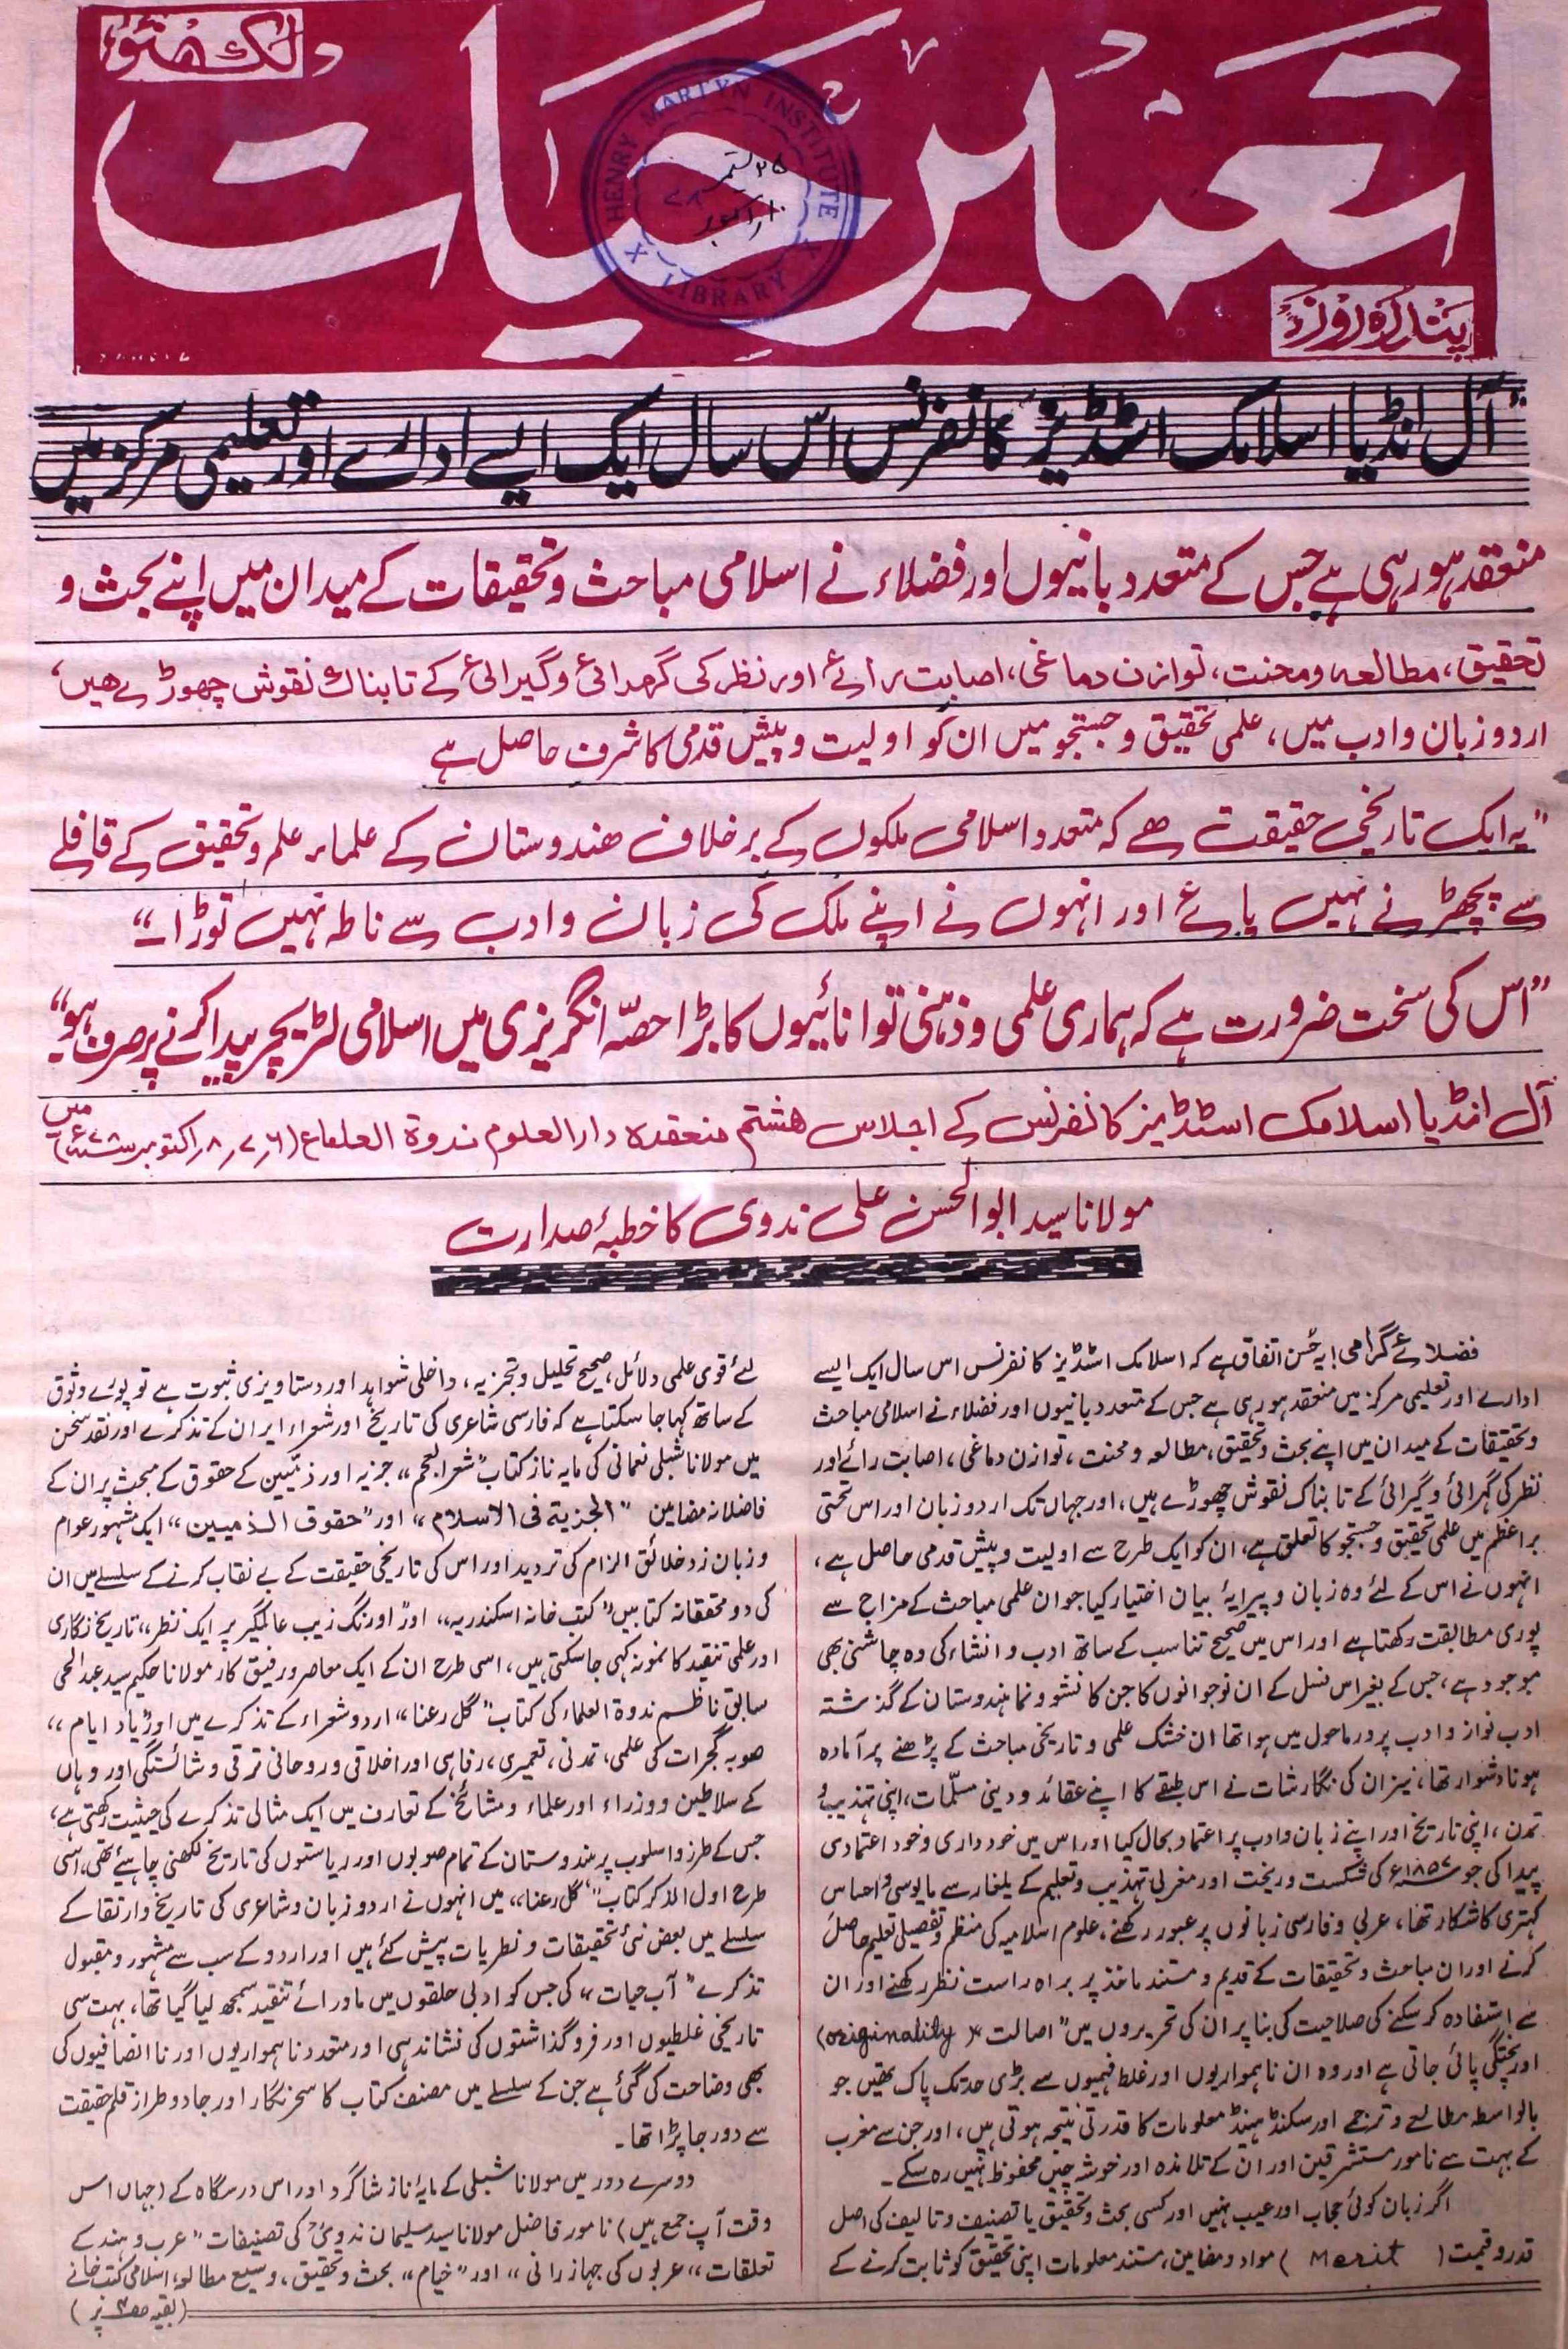 لکھنؤ
تعمیر حیات
پندرہ روزہ
HENRY MARTYN INSTITUTE
LIBRARY
۲۵ ستمبر
۱۰ اکتوبر
"آل انڈیا اسلامک اسٹڈیز کانفرنس اس سال ایک ایسے ادارے اور تعلیمی مرکز میں
منعقد ہو رہی ہے جس کے متعدد بانیوں اور فضلاء نے اسلامی مباحث و تحقیقات کے میدان میں اپنے بحث و
تحقیق، مطالعہ و محنت، توازن دماغی، اصابت رائے اور نظر کی گہرائی و گیرائی کے تابناک نقوش چھوڑے ہیں،
اردو زبان و ادب میں، علمی تحقیق و جستجو میں ان کو اولیت و پیش قدمی کا شرف حاصل ہے
"یہ ایک تاریخی حقیقت ہے کہ متعدد اسلامی ملکوں کے برخلاف ہندوستان کے علماء علم و تحقیق کے قافلے
سے پچھڑنے نہیں پائے اور انہوں نے اپنے ملک کی زبان و ادب سے ناطہ نہیں توڑا۔"
"اس کی سخت ضرورت ہے کہ ہماری علمی و ذہنی توانائیوں کا بڑا حصہ انگریزی میں اسلامی لٹریچر پیدا کرنے پر صرف ہو"
آل انڈیا اسلامک اسٹڈیز کانفرنس کے اجلاس ہشتم منعقدہ دارالعلوم ندوۃ العلماء (۶،۷،۸ اکتوبر ۷۸ء) میں
مولانا سید ابوالحسن علی ندوی کا خطبۂ صدارت
فضلائے گرامی! یہ حُسن اتفاق ہے کہ اسلامک اسٹڈیز کانفرنس اس سال ایک ایسے
ادارے اور تعلیمی مرکز میں منعقد ہو رہی ہے جس کے متعدد بانیوں اور فضلاء نے اسلامی مباحث
و تحقیقات کے میدان میں اپنے بحث و تحقیق، مطالعہ و محنت، توازن دماغی، اصابت رائے اور
نظر کی گہرائی و گیرائی کے تابناک نقوش چھوڑے ہیں، اور جہاں تک اردو زبان اور اس تحتی
براعظم میں علمی تحقیق و جستجو کا تعلق ہے، ان کو ایک طرح سے اولیت و پیش قدمی حاصل ہے،
انہوں نے اس کے لئے وہ زبان و پیرایۂ بیان اختیار کیا جو ان علمی مباحث کے مزاج سے
پوری مطابقت رکھتا ہے اور اس میں صحیح تناسب کے ساتھ ادب و انشاء کی وہ چاشنی بھی
موجود ہے، جس کے بغیر اس نسل کے ان نوجوانوں کا جن کا نشو و نما ہندوستان کے گذشتہ
ادب نواز و ادب پرور ماحول میں ہوا تھا ان خشک علمی و تاریخی مباحث کے پڑھنے پر آمادہ
ہونا دشوار تھا، نیز ان کی نگارشات نے اس طبقے کا اپنے عقائد و دینی مسلّمات، اپنی تہذیب و
تمدن، اپنی تاریخ اور اپنے زبان و ادب پر اعتماد بحال کیا اور اس میں خودداری و خود اعتمادی
پیدا کی جو ۱۸۵۷ء کی شکست و ریخت اور مغربی تہذیب و تعلیم کے یلغار سے مایوسی و احساس
کہتری کا شکار تھا، عربی و فارسی زبانوں پر عبور رکھنے، علوم اسلامیہ کی منظم و تفصیلی تعلیم حاصل
کرنے اور ان مباحث و تحقیقات کے قدیم و مستند ماخذ پر براہ راست نظر رکھنے اور ان
سے استفادہ کر سکنے کی صلاحیت کی بنا پر ان کی تحریروں میں "اصالت" (originality)
اور پختگی پائی جاتی ہے اور وہ ان ناہمواریوں اور غلط فہمیوں سے بڑی حد تک پاک تھیں جو
بالواسطہ مطالعے و ترجمے اور سکنڈ ہینڈ معلومات کا قدرتی نتیجہ ہوتی ہیں، اور جن سے مغرب
کے بہت سے نامور مستشرقین اور ان کے تلامذہ اور خوشہ چیں محفوظ نہیں رہ سکے۔
اگر زبان کوئی حجاب اور عیب نہیں اور کسی بحث و تحقیق یا تصنیف و تالیف کی اصل
قدر و قیمت (Merit) مواد و مضامین، مستند معلومات اپنی تحقیق کو ثابت کرنے کے
لئے قوی علمی دلائل، صحیح تحلیل و تجزیہ، داخلی شواہد اور دستاویزی ثبوت ہے تو پورے وثوق
کے ساتھ کہا جا سکتا ہے کہ فارسی شاعری کی تاریخ اور شعراء ایران کے تذکرے اور نقد سخن
میں مولانا شبلی نعمانی کی مایہ ناز کتاب "شعر العجم" جزیہ اور ذمیّین کے حقوق کے مبحث پر ان کے
فاضلانہ مضامین "الجزیۃ فی الاسلام" اور "حقوق الذمیین" ایک مشہور عوام
و زبان زد خلائق الزام کی تردید اور اس کی تاریخی حقیقت کے بے نقاب کرنے کے سلسلے میں ان
کی دو محققانہ کتابیں "کتب خانہ اسکندریہ" اور "اورنگ زیب عالمگیر پر ایک نظر" تاریخ نگاری
اور علمی تنقید کا نمونہ کہی جا سکتی ہیں، اسی طرح ان کے ایک معاصر و رفیق کار مولانا حکیم سید عبدالحی
سابق ناظم ندوۃ العلماء کی کتاب "گل رعنا" اردو شعراء کے تذکرے میں اور "یاد ایام"
صوبہ گجرات کی علمی، تمدنی، تعمیری، رفاہی اور اخلاقی و روحانی ترقی و شائستگی اور وہاں
کے سلاطین و وزراء اور علماء و مشائخ کے تعارف میں ایک مثالی تذکرے کی حیثیت رکھتی ہے،
جس کے طرز و اسلوب پر ہندوستان کے تمام صوبوں اور ریاستوں کی تاریخ لکھنی چاہیئے تھی، اسی
طرح اول الذکر کتاب "گل رعنا" میں انہوں نے اردو زبان و شاعری کی تاریخ و ارتقا کے
سلسلے میں بعض نئی تحقیقات و نظریات پیش کئے ہیں اور اردو کے سب سے مشہور و مقبول
تذکرے "آب حیات" کی جس کو ادبی حلقوں میں ماورائے تنقید سمجھ لیا گیا تھا، بہت سی
تاریخی غلطیوں اور فروگذاشتوں کی نشاندہی اور متعدد ناہمواریوں اور ناانصافیوں کی
بھی وضاحت کی گئی ہے جن کے سلسلے میں مصنف کتاب کا سحر نگار اور جادو طراز قلم حقیقت
سے دور جا پڑا تھا۔
دوسرے دور میں مولانا شبلی کے مایۂ ناز شاگرد اور اس درسگاہ کے (جہاں اس
وقت آپ جمع ہیں) نامور فاضل مولانا سید سلیمان ندویؒ کی تصنیفات "عرب و ہند کے
تعلقات" "عربوں کی جہاز رانی" اور "خیام" بحث و تحقیق، وسیع مطالعہ، اسلامی کتب خانے
(بقیہ ص۳ پر)